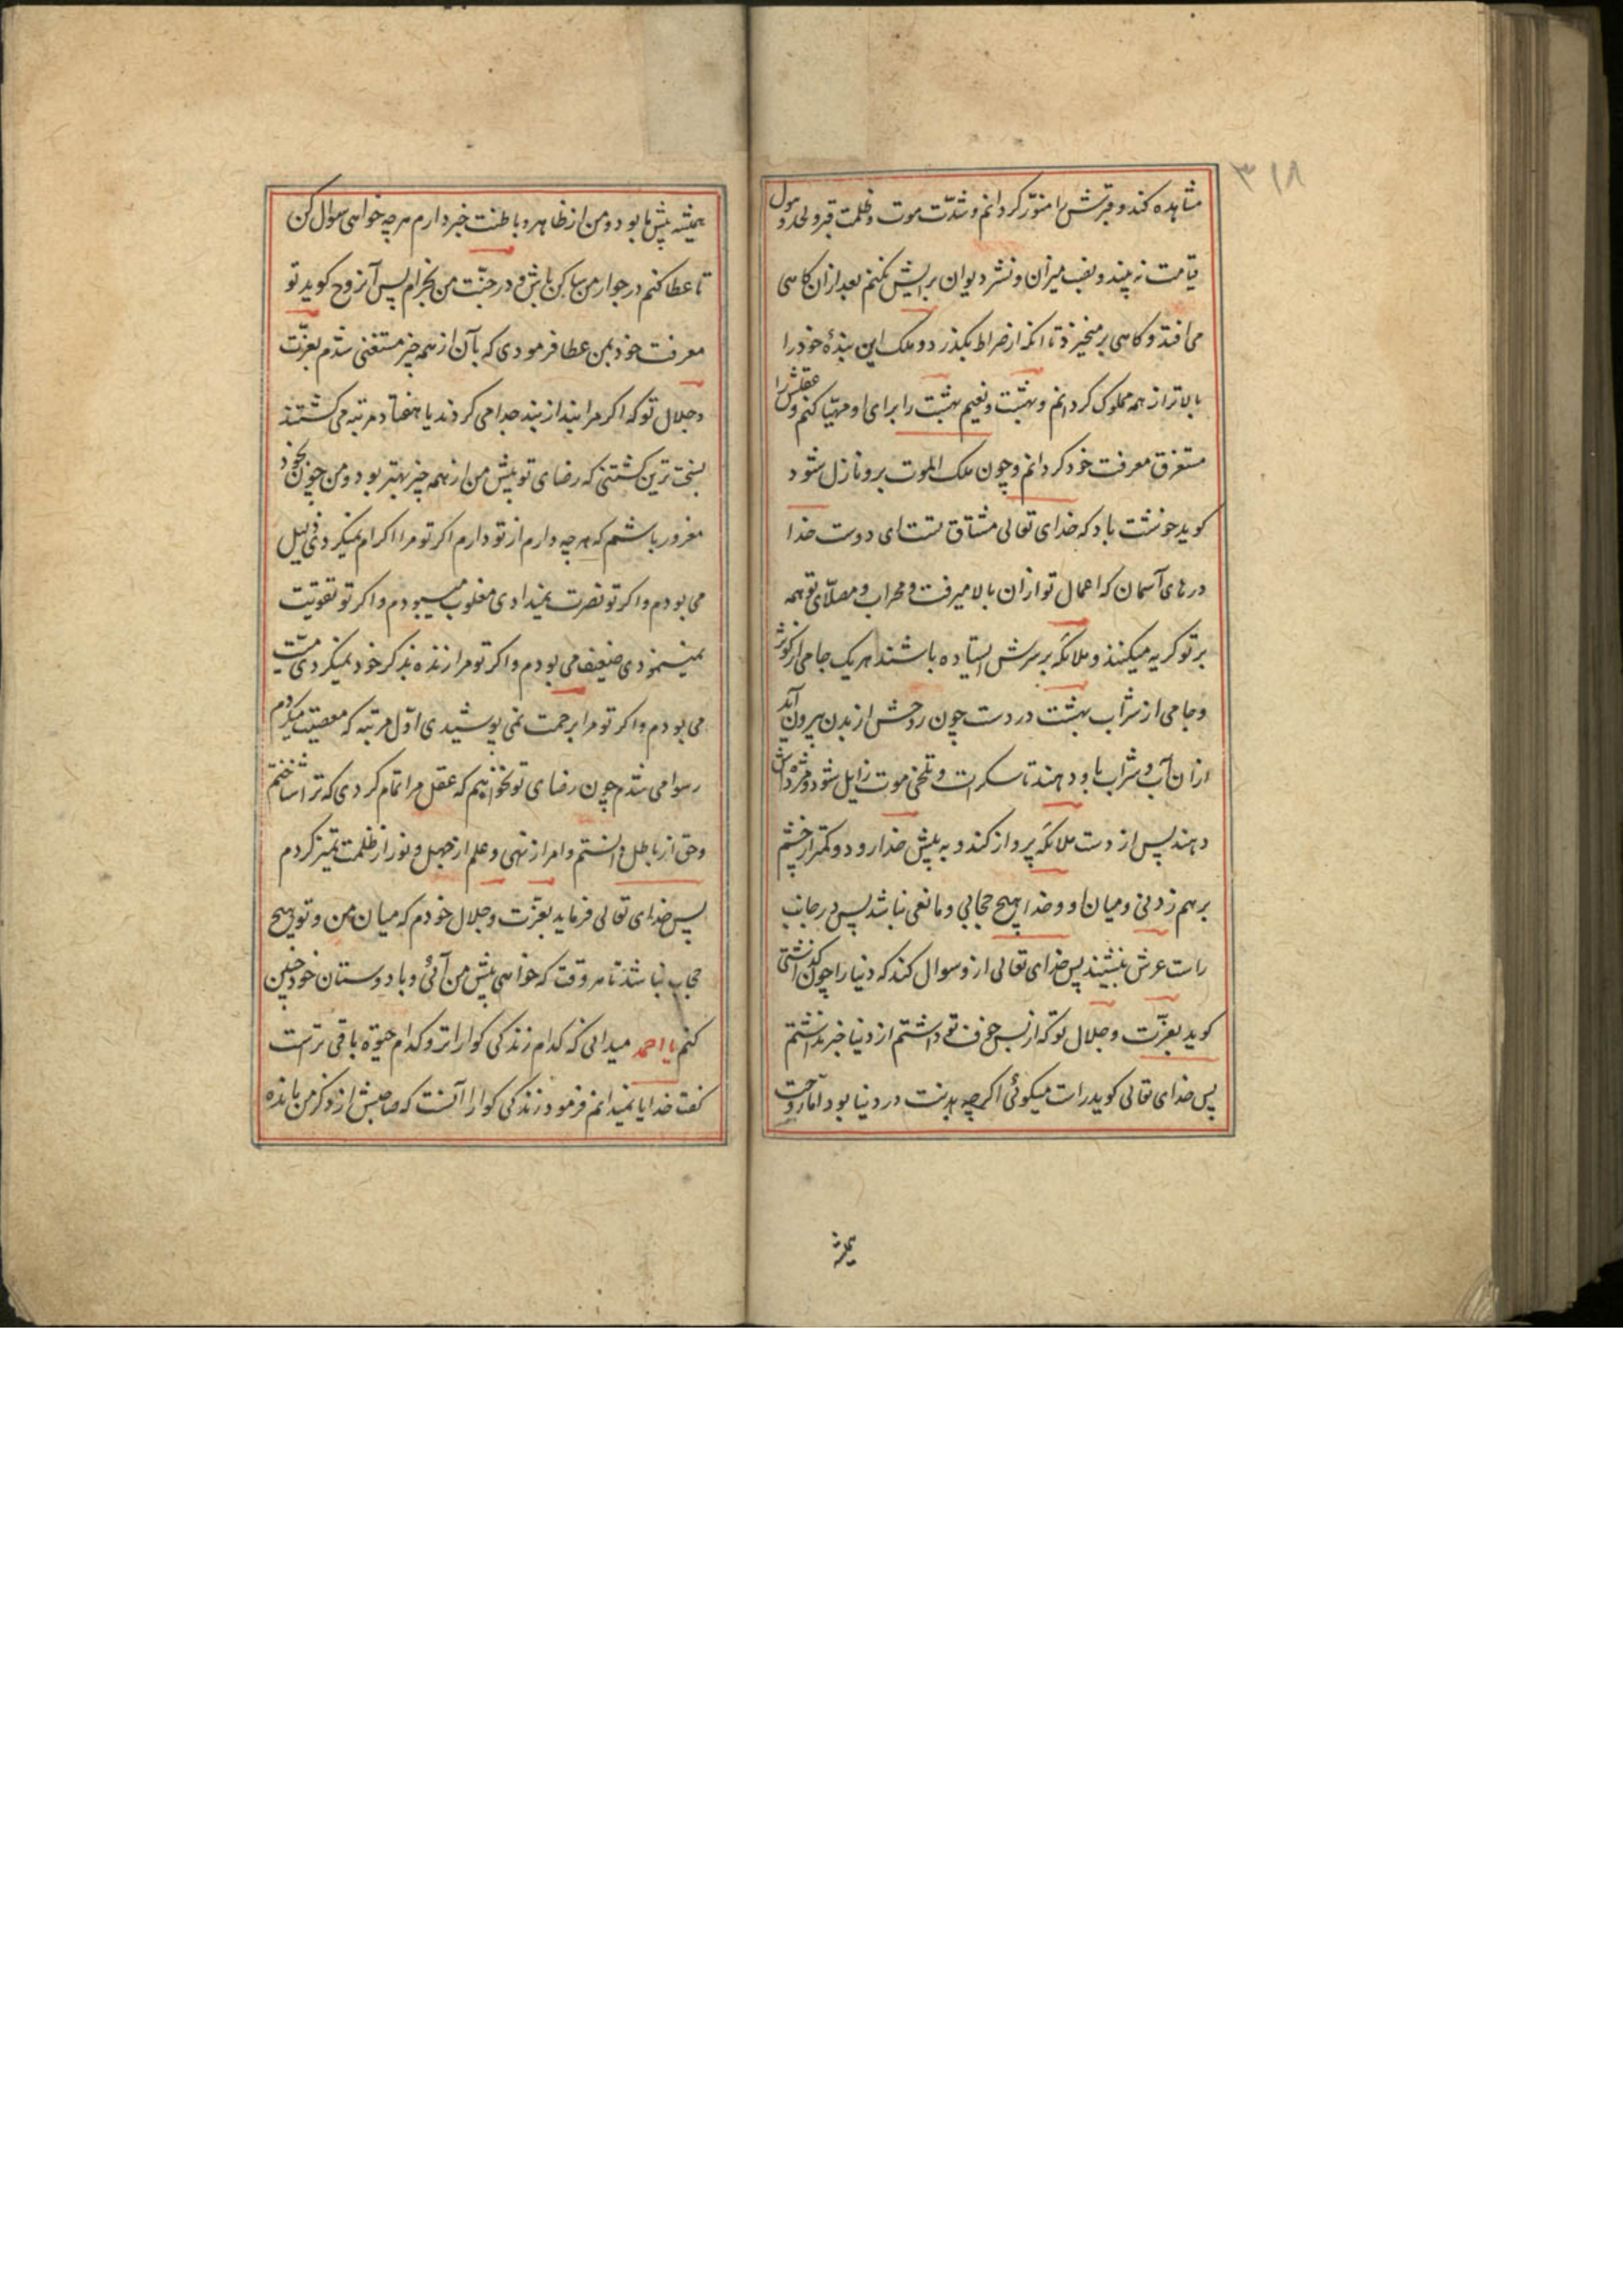 ۳۱۸
مشاهده کند و قبرش را منوّر کردانم و شدّت موت و ظلمت قبر و لحد و هول
قیامت نه بیند و نصب میزان و نشر دیوان برایش نکنم بعد ازان کاهی
می افتد و کاهی بر میخیزد تا انکه از صراط بکذرد و ملک این بندهٔ خود را
بالاتر از همه ملوک کردانم و بهشت و نعیم بهشت را برای او مهیّا کنم و عقلش را
مستغرق معرفت خود کردانم و چون ملک الموت برو نازل شود
کوید خوشت باد که خدای تعالی مشتاق تست ای دوست خدا
درهای آسمان که اعمال تو ازان بالا میرفت و محراب و مصلّای تو همه
بر تو کریه میکنند و ملائکه بر سرش ایستاده باشند هر یک جامی از کوثر
و جامی از شراب بهشت در دست چون روحش از بدن بیرون آید
ازان آب و شراب باو دهند تا سکرات و تلخی موت زایل شود و مژده اش
دهند پس از دست ملائکه پرواز کند و به پیش خدا رود و کمتر از چشم
برهم زدنی و میان او و خدا هیچ حجابی و مانعی نباشد پس در جانب
راست عرش بنشیند پس خدای تعالی ازو سوال کند که دنیا را چون کذاشتی
کوید بعزّت و جلال تو که از بس خوف تو داشتم از دنیا خبر نداشتم
پس خدای تعالی کوید راست میکوئی اکرچه بدنت در دنیا بود اما روحت
همیشه
همیشه پیش ما بود و من از ظاهر و باطنت خبر دارم هر چه خواهی سوال کن
تا عطا کنم در جوار من ساکن باش و در جنّت من بخرام پس آنروح کوید تو
معرفت خود بمن عطا فرمودی که بآن از همه چیز مستغنی شدم بعزّت
و جلال تو که اکر مرا بند از بند جدا می کردند یا هفتاد مرتبه می کشتند
بسخت ترین کشتنی که رضای تو پیش من از همه چیز بهتر بود و من چون بخود
مغرور باشم که هرچه دارم از تو دارم اکر تو مرا اکرام نمیکردی ذلیل
می بودم و اکر تو نصرت نمیدادی مغلوب میبودم و اکر تو تقویت
نمینمودی ضعیف می بودم و اکر تو مرا زنده بذکر خود نمیکردی میّت
می بودم و اکر تو مرا برحمت نمی پوشیدی اوّل مرتبه که معصیت میکردم
رسوا می شدم چون رضای تو نخواهم که عقل مرا تمام کردی که ترا شناختم
و حق از باطل دانستم و امر از نهی و علم از جهل و نور از ظلمت تمیز کردم
پس خدای تعالی فرماید بعزّت و جلال خودم که میان من و تو هیچ
حجاب نباشد تا هر وقت که خواهی پیش من آئی و با دوستان خود چنین
کنم یا احمد میدانی که کدام زندکی کواراتر و کدام حیوة باقی ترست
کفت خدایا نمیدانم فرمود زندکی کوارا آنست که صاحبش از ذکر من مانده